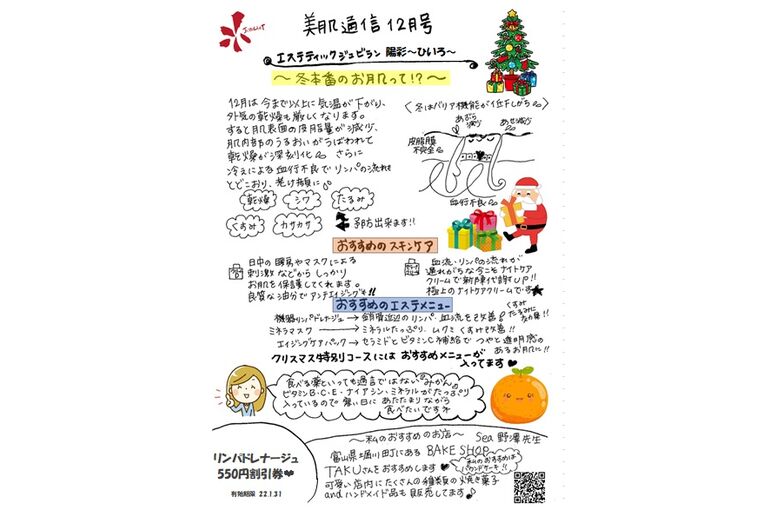 美肌通信12月号
エステティックジュビラン 陽彩~ひいろ~
~冬本番のお肌って!?~
12月は今まで以上に気温が下がり、
外気の乾燥も厳しくなります。
すると肌表面の皮脂量が減少、
肌内部のうるおいがうばわれて
乾燥が深刻化 さらに
冷えによる血行不良でリンパの流れも
とどこおり、老け顔に
乾燥 シワ たるみ
くすみ カサカサ
予防出来ます!!
<冬はバリア機能が低下しがち>
あぶら減少
あせ減少
皮脂膜
不完全
血行不良
おすすめのスキンケア
日中の暖房やマスクによる
刺激などからしっかり
お肌を保護してくれます。
良質な油分でアンチエイジングも!!
血流・リンパの流れが
遅れがちな今こそナイトケア
クリームで新陳代謝UP!!
極上のナイトケアクリームです★
おすすめのエステメニュー
機器リンパドレナージュ→肩周辺のリンパ、血流を改善
くすみ
たるみに
効果!!
ミネラマスク→ミネラルたっぷり、ムクミくすみ改善!!
エイジングケアパック→セラミドとビタミンC補給でつやと透明感の
あるお肌に!!
クリスマス特別コースにはおすすめメニューが
入ってます♥
食べる薬といっても過言ではない"みかん"。
ビタミンB・C・E・ナイアシン・ミネラルがたっぷり
入っているので寒い日にあたたまりながら
食べたいですね
~私のおすすめのお店~ Sea 野澤先生
富山県堀川町にあるBAKE SHOP
TAKUさんをおすすめします♥
私のおすすめは
パウンドケーキ!!
可愛い店内にたくさんの種類の焼き菓子
andハンドメイド品も販売してます♪
リンパドレナージュ
550円割引券♥
有効期限 22.1.31